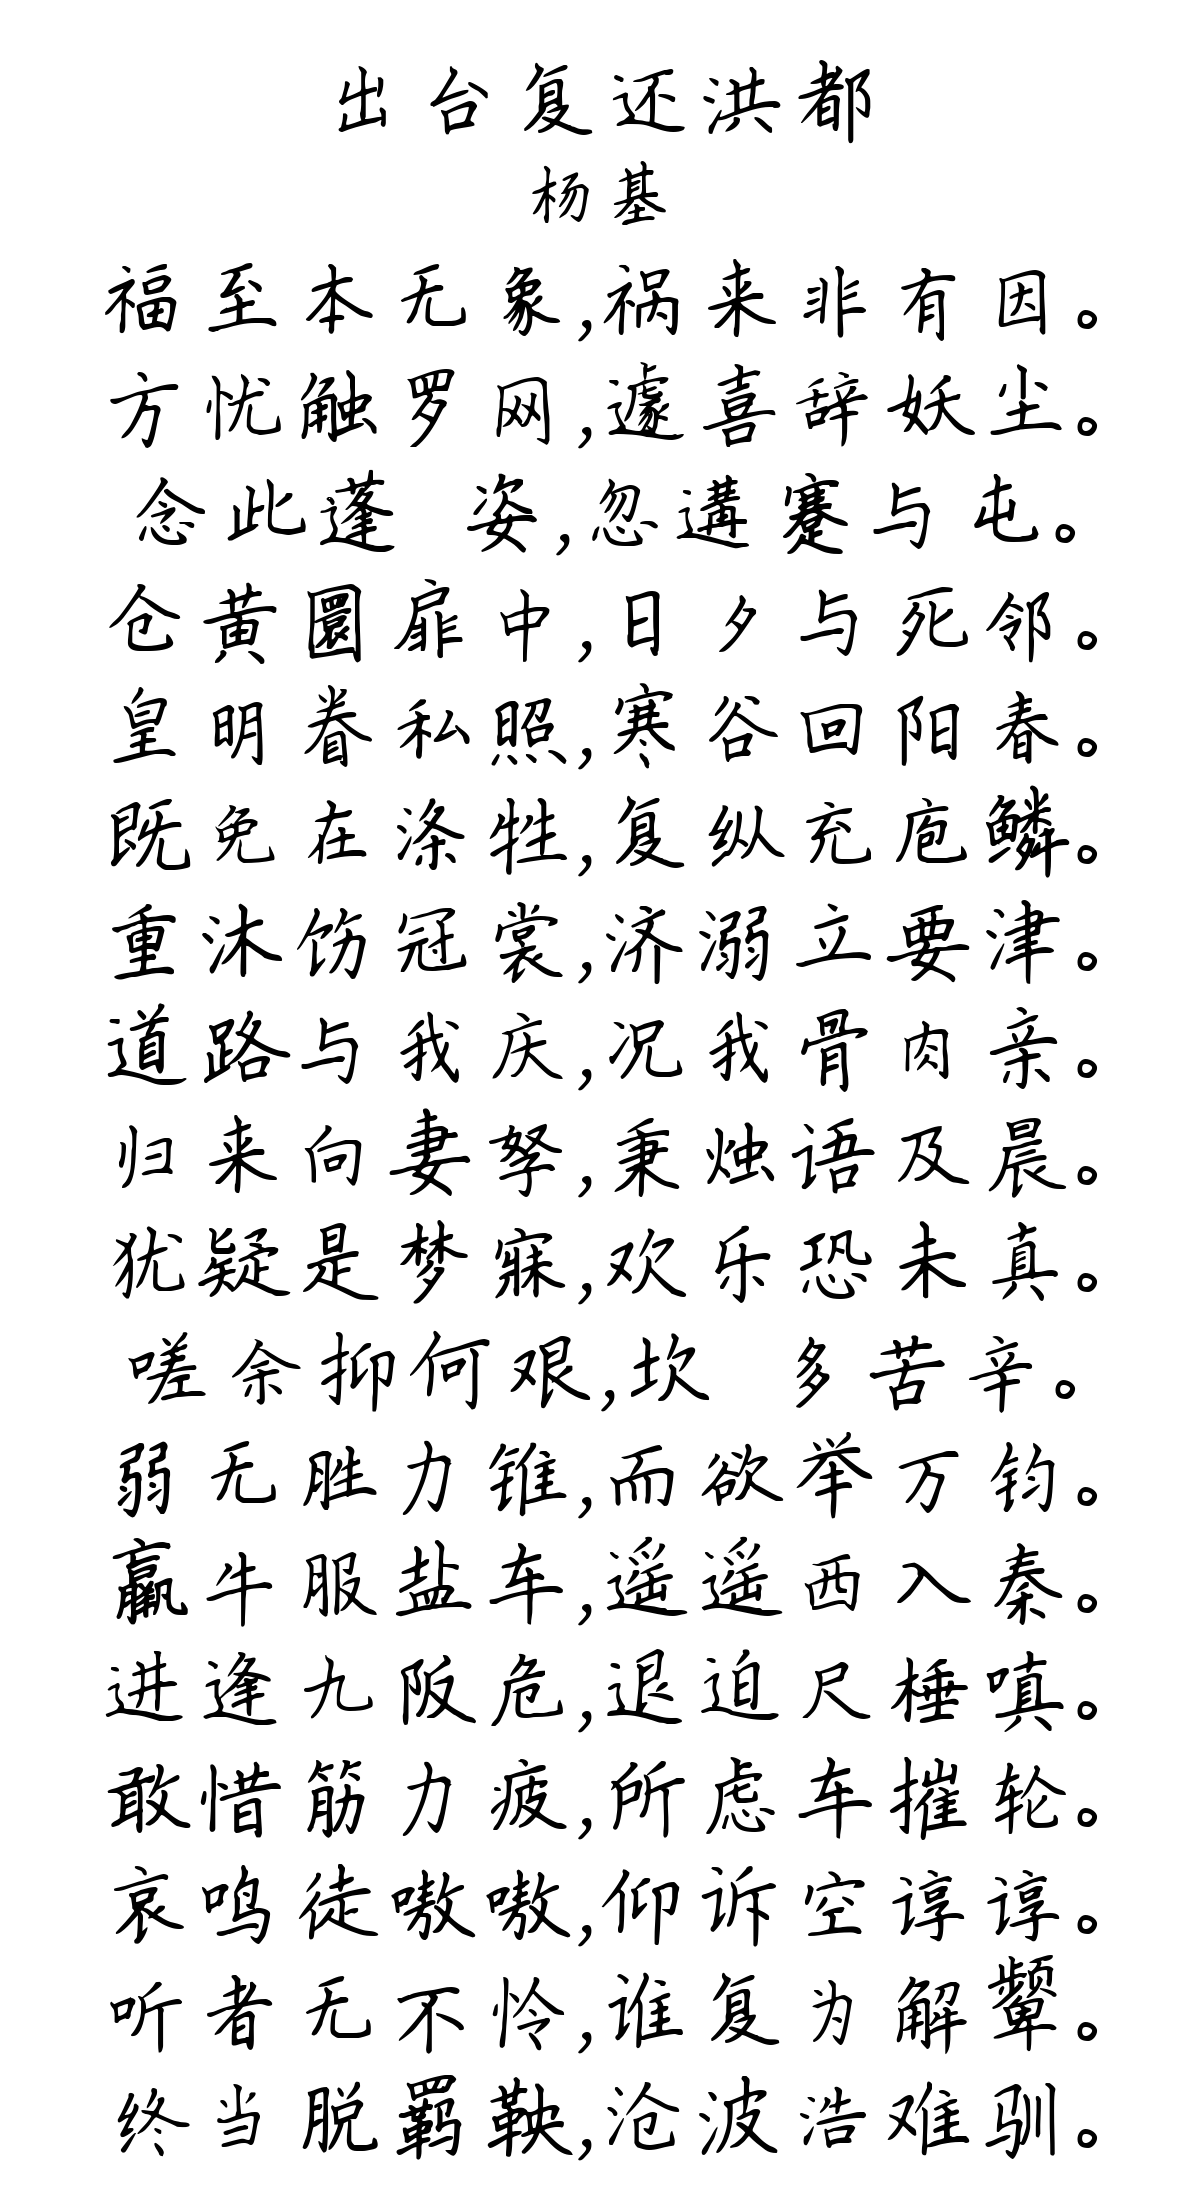 出台复还洪都
杨基
福至本无象,祸来非有因。
方忧触罗网,遽喜辞妖尘。
念此蓬 姿,忽遘蹇与屯。
仓黄圜扉中,日夕与死邻。
皇明眷私照,寒谷回阳春。
既免在涤牲,复纵充庖鳞。
重沐饬冠裳,济溺立要津。
道路与我庆,况我骨肉亲。
归来向妻孥,秉烛语及晨。
犹疑是梦寐,欢乐恐未真。
嗟余抑何艰,坎 多苦辛。
弱无胜力锥,而欲举万钧。
羸牛服盐车,遥遥西入秦。
进逢九阪危,退迫尺棰嗔。
敢惜筋力疲,所虑车摧轮。
哀鸣徒嗷嗷,仰诉空谆谆。
听者无不怜,谁复为解颦。
终当脱羁鞅,沧波浩难驯。